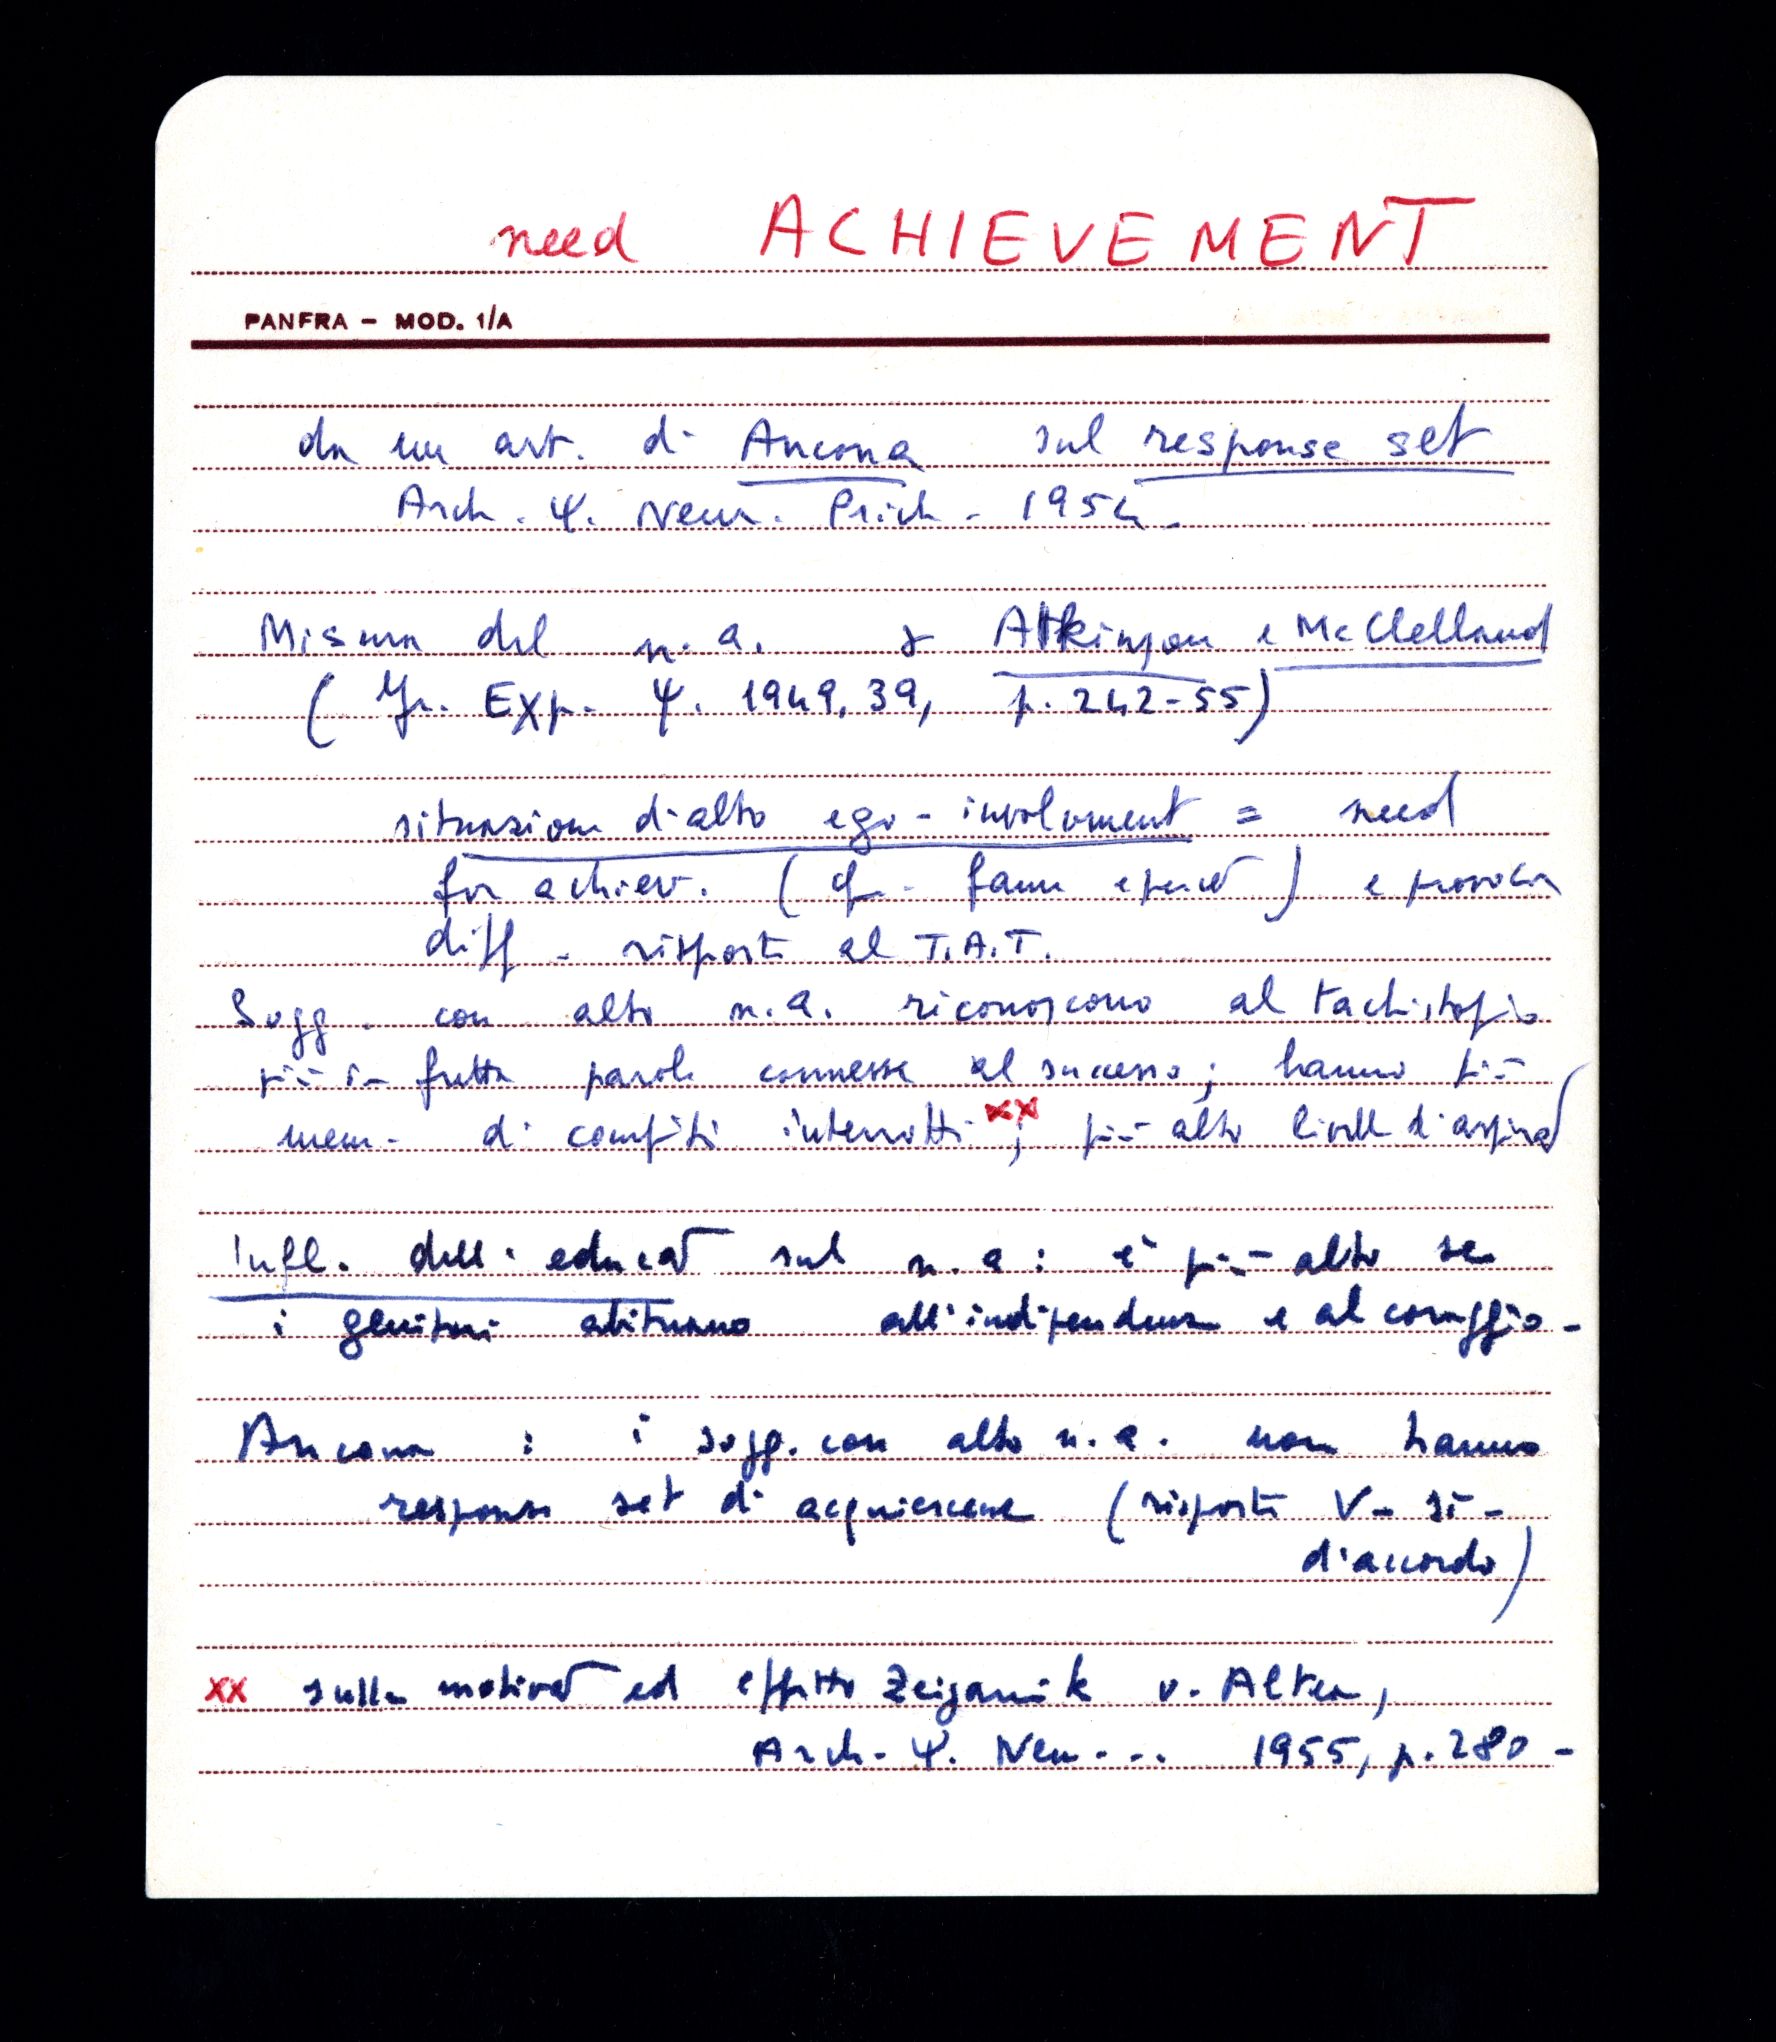 need ACHIEVEMENT
PANFRA - MOD. 1/A
da un art. di Ancona sul response set
Arch. ψ. Neur. Psich. 1954.
Misura del n.a. Atkinson e McClelland
( Exp. ψ. 1949, 39, p. 242-55)
situazione di alto ego-involvment = need
for achiev. (cf. fame e ) e provoca
diff. risposte al T.A.T.
Sogg. con alto n.a. riconoscono al tachistosopio
più in fretta parole connesse al successo; hanno più
mem. di compiti interrotti xx; più alto livello d'aspiraz
Infl. dell'educaz sul n.a: è più alto se
i genitori abituano all'indipendenza e al coraggio-
Ancona : i sogg. con alto n.a. non hanno
response set di acquiescenza (risposte V- sì-
d'accordo)
xx sulla motivaz ed effetto Zeigarnik v. Alter,
Arch. ψ. Neu... 1955, p. 280-